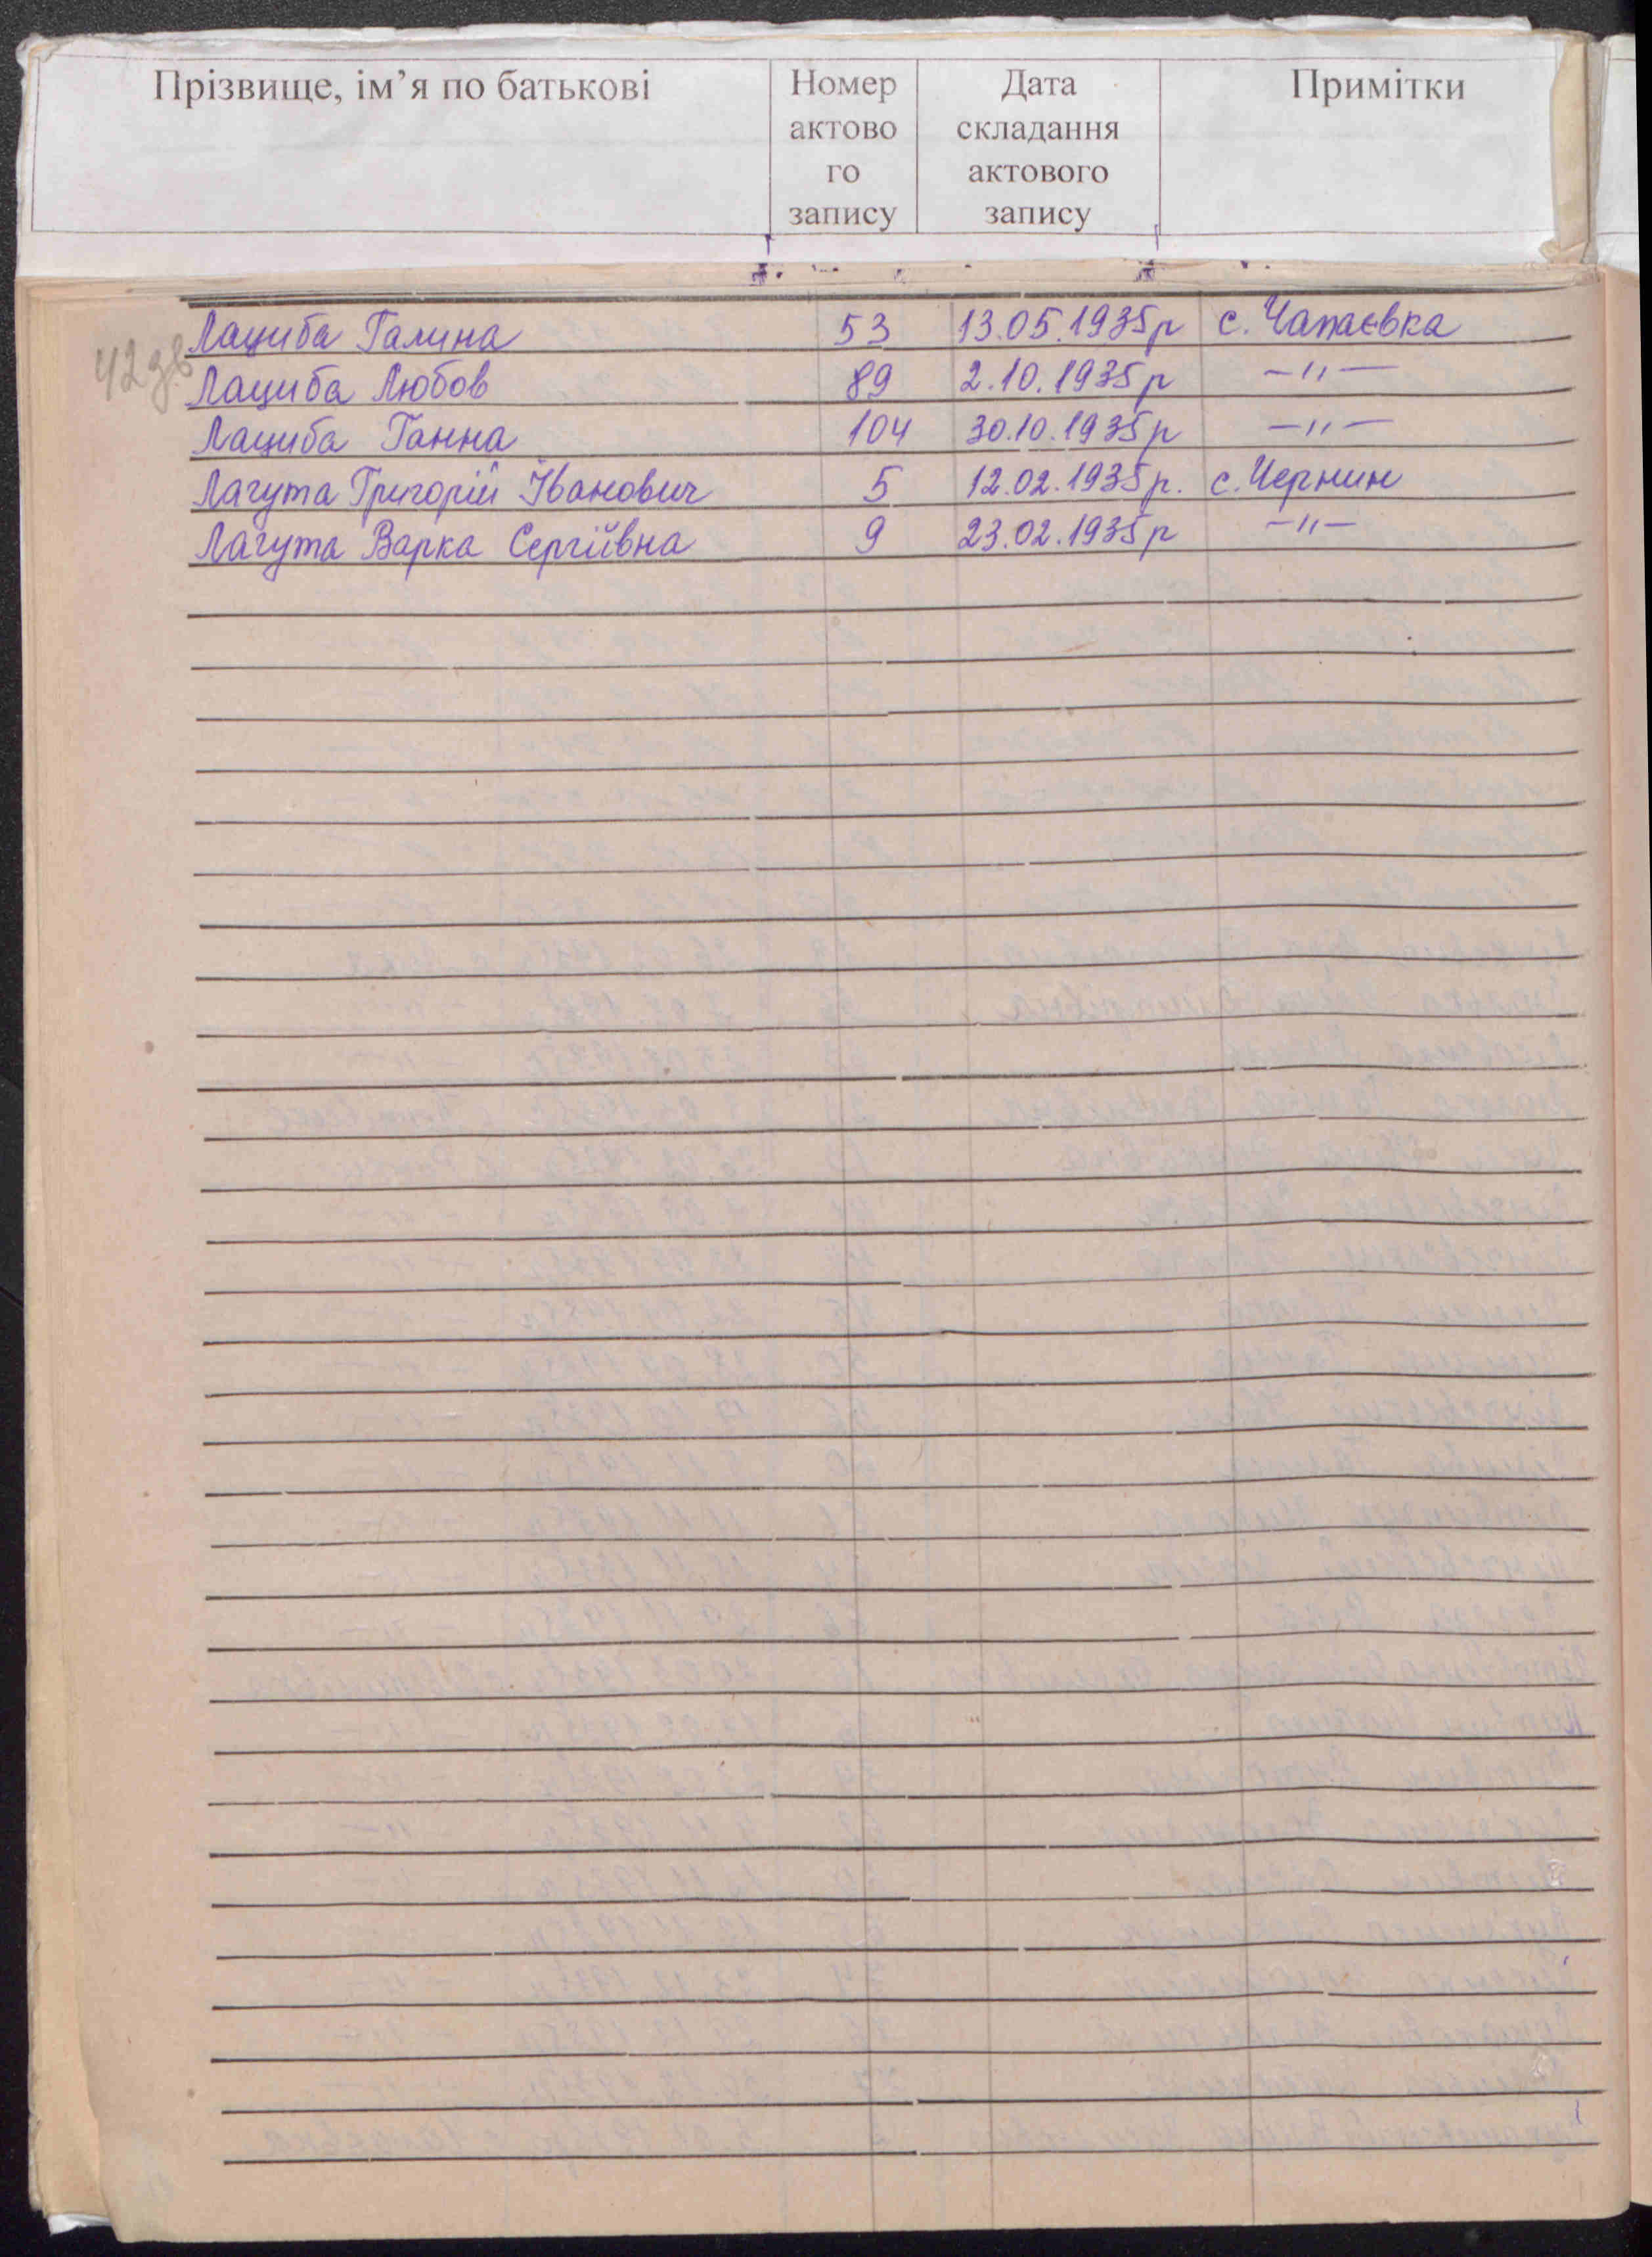 Прізвище, ім’я по батькові Номер актово го запису Дата складання актового запису Примітки
42 зв
Лациба Галина 53 13.05.1935р с. Чапаєвка
Лациба Любов 89 2.10.1935р —"—
Лациба Ганна 104 30.10.1935р —"—
Лагута Григорій Іванович 5 12.02.1935р. с. Чернин
Лагута Варка Сергіївна 9 23.02.1935р —"—